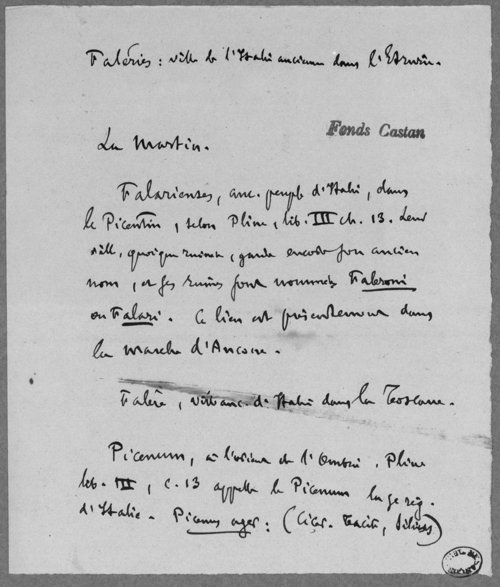 Faléries : ville de l'Italie ancienne dans l'Etrurie.
Fonds Castan
La Martin.
Falarienses, anc. peuple d'Italie, dans
le Picentin, selon Pline, lib. III ch. 13. Leur
ville, quoique ruinée, garde encore son ancien
nom, et ses ruines sont nommées Faleroni
ou Falari. Ce lieu est présentement dans
la marche d'Ancone.
Falère, ville anc. d'Italie dans la Toscane.
Picenum, à l'orient de l'Ombrie. Pline
lib. III, c. 13 appelle le Picenum la 5e rég.
d'Italie. Picenus ager : (Cicér. Tacite, Silius)